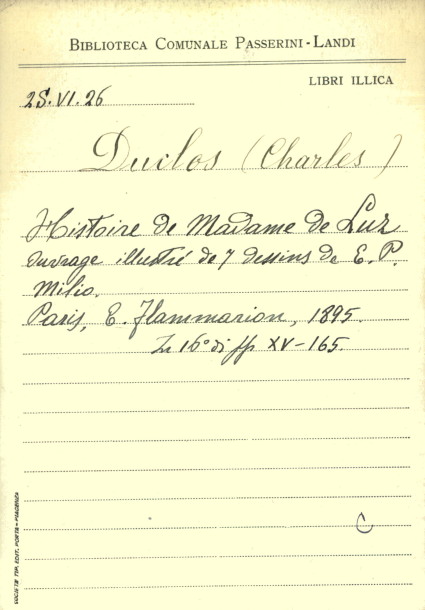 BIBLIOTECA COMUNALE PASSERINI-LANDI
LIBRI ILLICA
2S.VI.26
Duclos (Charles)
Histoire de Madame de Luz
ouvrage illustré de 7 dessins de E. P.
Milio.
Paris, E. Flammarion, 1895.
In 16° di pp XV-165.
C
SOCIETÀ TIP. EDIT. PORTA - PIACENZA